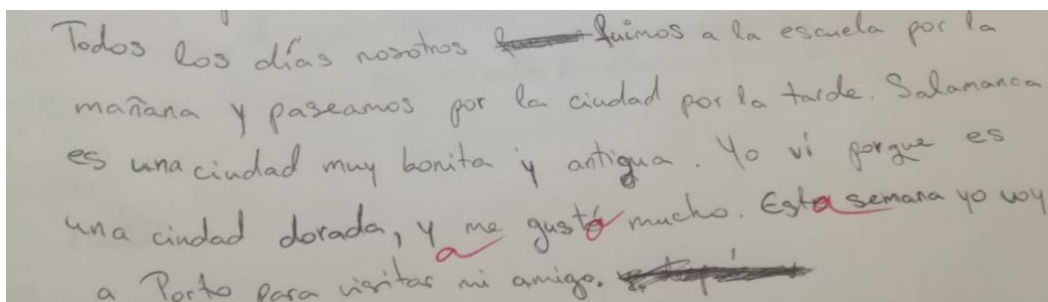 Todos los días nosotros fuimos a la escuela por la
mañana y paseamos por la ciudad por la tarde. Salamanca
es una ciudad muy bonita y antigua. Yo vi porque es
una ciudad dorada, y me gustó mucho. Esta semana yo voy
a
a Porto para visitar mi amigo.